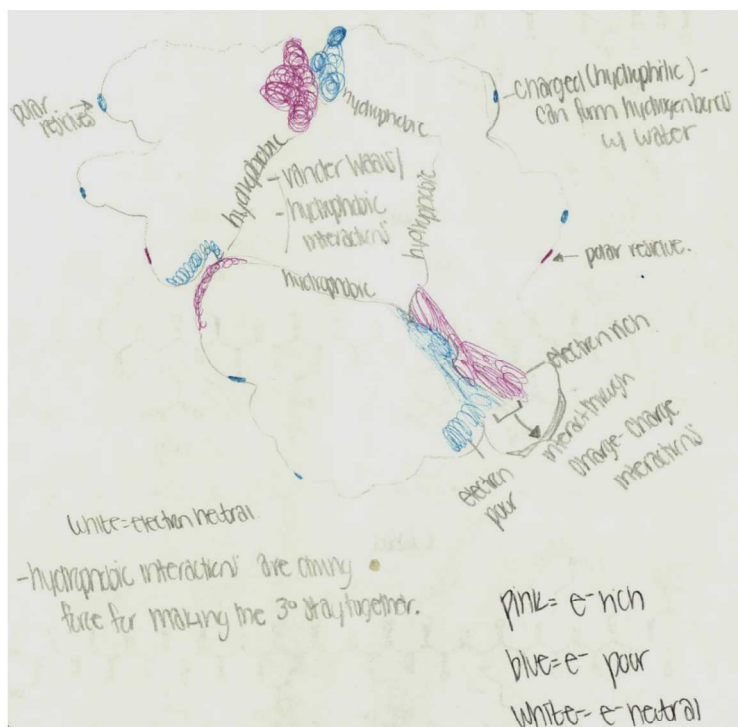 polar
residues
hydrophobic
charged (hydrophilic) -
can form hydrogen bonds
w/ water
hydrophobic
- vander waals/
- hydrophobic
interactions
hydrophobic
hydrophobic
polar residue.
electron rich
interact through
charge-charge
interactions
electron
poor
white = electron neutral
- hydrophobic interactions are driving
force for making the 3° stay together.
pink = e⁻ rich
blue = e⁻ poor
white = e⁻ neutral